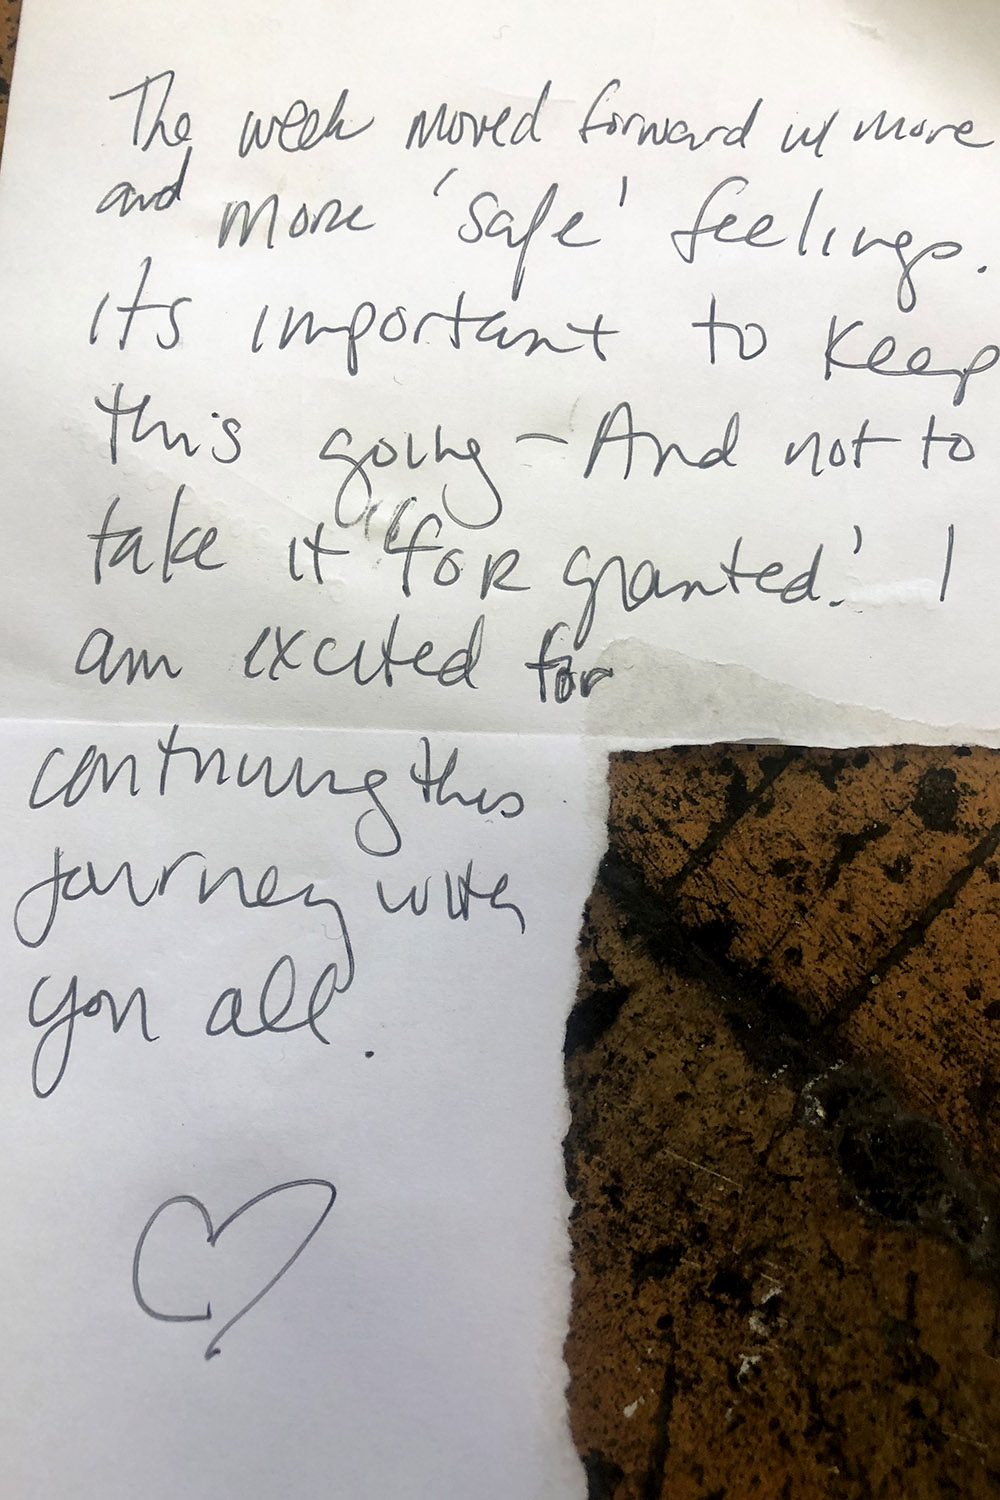 The week moved forward w/ more
and more 'safe' feelings.
its important to keep
this going – And not to
take it "for granted.' I
am excited for
continuing this
journey with
you all.